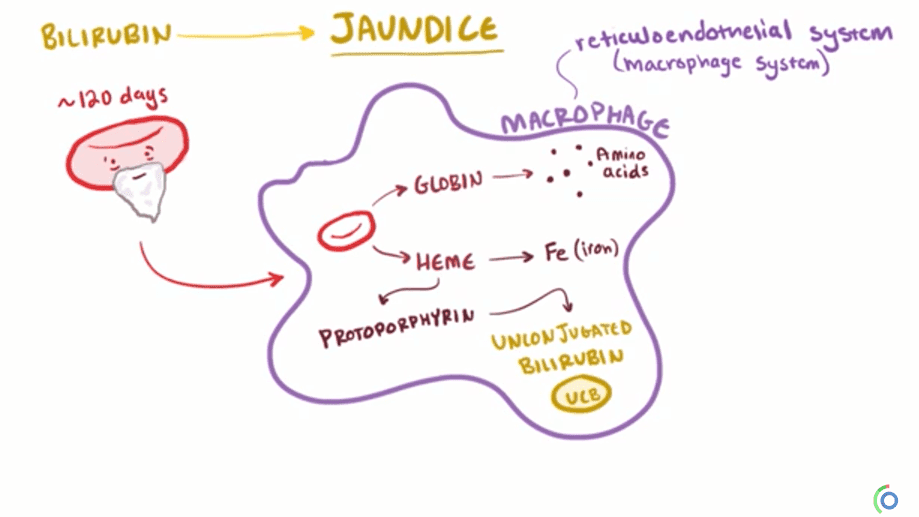 BILIRUBIN
JAUNDICE
reticuloendothelial system
(macrophage system)
~120 days
MACROPHAGE
GLOBIN
Amino
acids
HEME
Fe (iron)
PROTOPORPHYRIN
UNCONJUGATED
BILIRUBIN
UCB